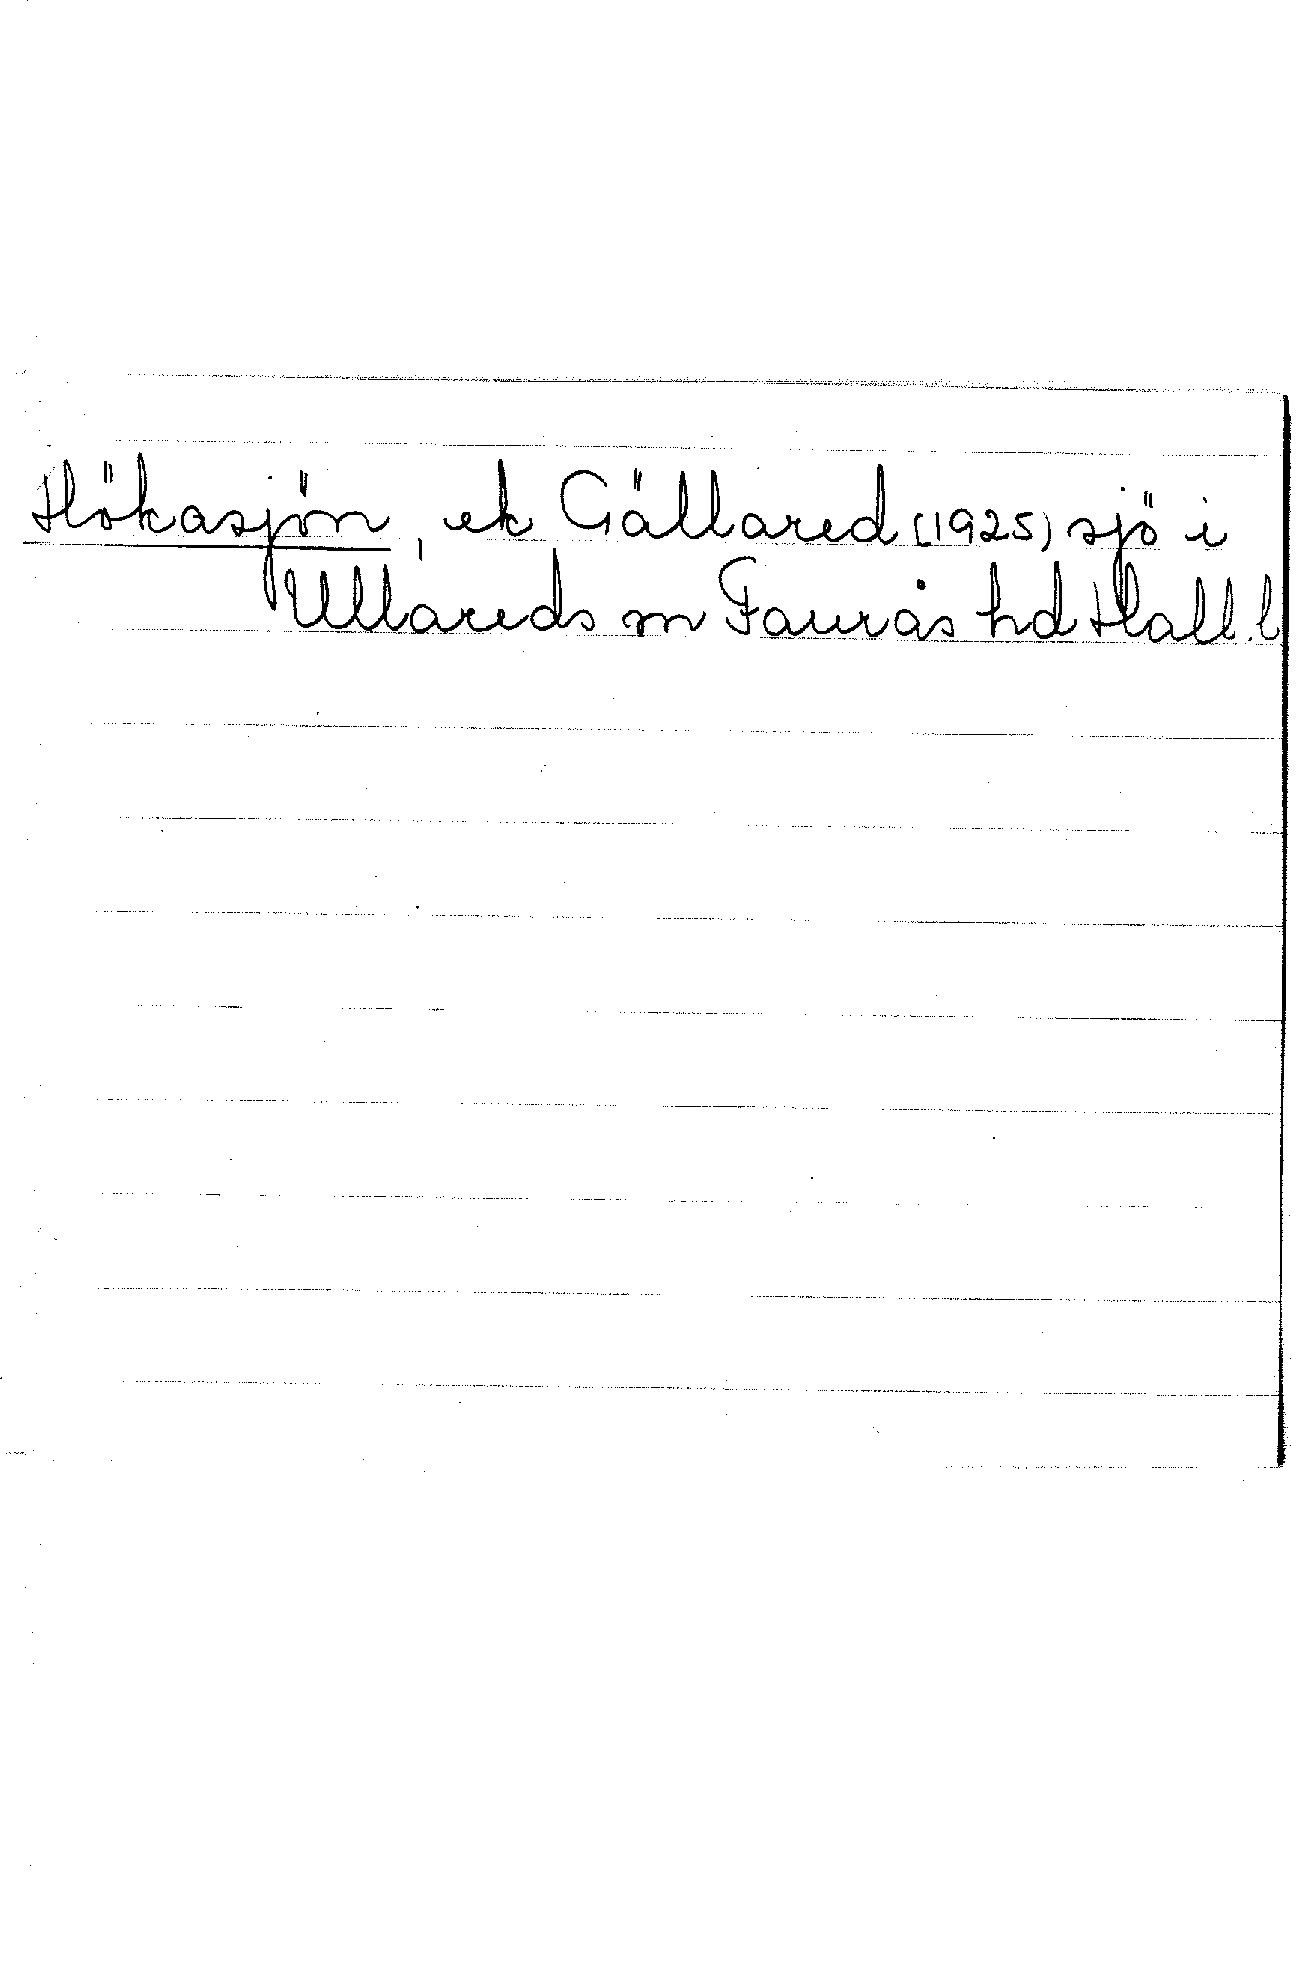 Hökasjön, ek Gällared (1925) sjö i
Ullareds sn Faurås hd Hall. l